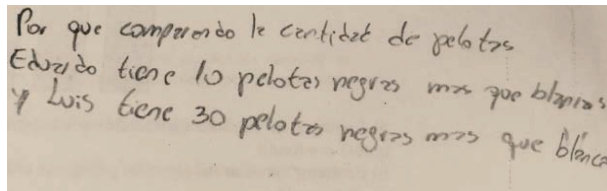 Por que comparando la cantidad de pelotas
Eduardo tiene 10 pelotas negras mas que blancas
y Luis tiene 30 pelotas negras mas que blanca